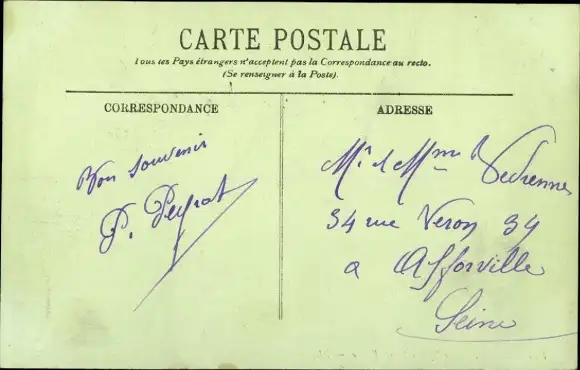 CARTE POSTALE
Tous les Pays étrangers n'acceptent pas la Correspondance au recto.
(Se renseigner à la Poste).
CORRESPONDANCE
ADRESSE
Bon souvenir
P. Peyrat
Mr & Mme Vedrennes
34 rue Véron 34
a Alforville
Seine